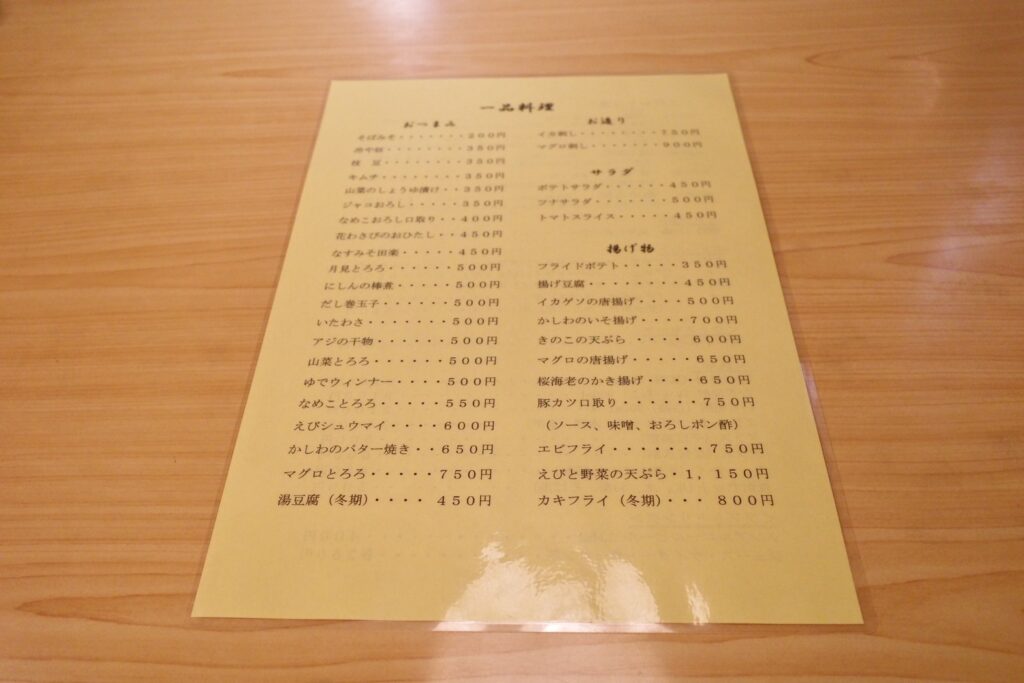 一品料理
おつまみ
そばみそ・・・・・・・２００円
冷や奴・・・・・・・・３５０円
枝　豆・・・・・・・・３５０円
キムチ・・・・・・・・３５０円
山菜のしょうゆ漬け・・３５０円
ジャコおろし・・・・・３５０円
なめこおろし口取り・・４００円
花わさびのおひたし・・４５０円
なすみそ田楽・・・・・４５０円
月見とろろ・・・・・・５００円
にしんの棒煮・・・・・５００円
だし巻玉子・・・・・・５００円
いたわさ・・・・・・・５００円
アジの干物・・・・・・５００円
山菜とろろ・・・・・・５００円
ゆでウィンナー・・・・５００円
なめことろろ・・・・・５５０円
えびシュウマイ・・・・６００円
かしわのバター焼き・・６５０円
マグロとろろ・・・・・７５０円
湯豆腐（冬期）・・・・ ４５０円
お造り
イカ刺し・・・・・・・７５０円
マグロ刺し・・・・・・９００円
サラダ
ポテトサラダ・・・・・・４５０円
ツナサラダ・・・・・・・５００円
トマトスライス・・・・・４５０円
揚げ物
フライドポテト・・・・・３５０円
揚げ豆腐・・・・・・・・４５０円
イカゲソの唐揚げ・・・・５００円
かしわのいそ揚げ・・・・７００円
きのこの天ぷら ・・・・ ６００円
マグロの唐揚げ・・・・・６５０円
桜海老のかき揚げ・・・・６５０円
豚カツ口取り・・・・・・・７５０円
（ソース、味噌、おろしポン酢）
エビフライ・・・・・・・７５０円
えびと野菜の天ぷら・１，１５０円
カキフライ（冬期）・・・ ８００円